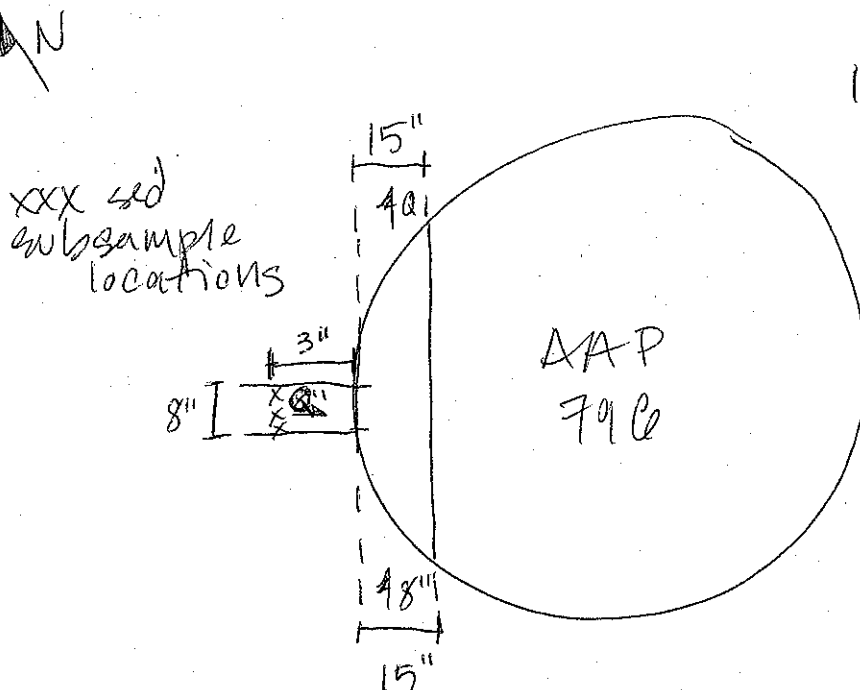 N
15"
xxx sed
subsample
locations
3"
8"
x
x
x
AAP
796
48"
15"